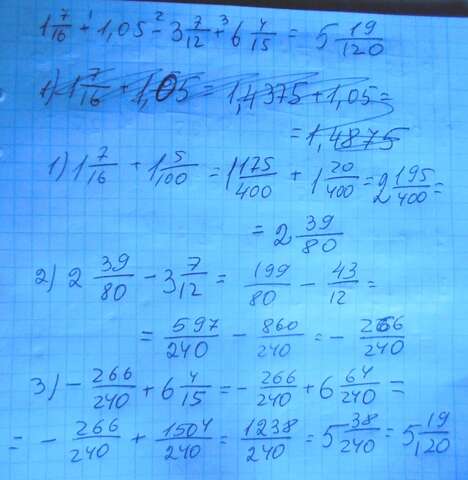 1 7/16 + 1,05 - 3 7/12 + 6 4/15 = 5 19/120
1) 1 7/16 + 1,05 = 1,4375 + 1,05 =
= 1,4875
1) 1 7/16 + 1 5/100 = 1 175/400 + 1 20/400 = 2 195/400 =
= 2 39/80
2) 2 39/80 - 3 7/12 = 199/80 - 43/12 =
= 597/240 - 860/240 = - 266/240
3) - 266/240 + 6 4/15 = - 266/240 + 6 64/240 =
= - 266/240 + 1504/240 = 1238/240 = 5 38/240 = 5 19/120